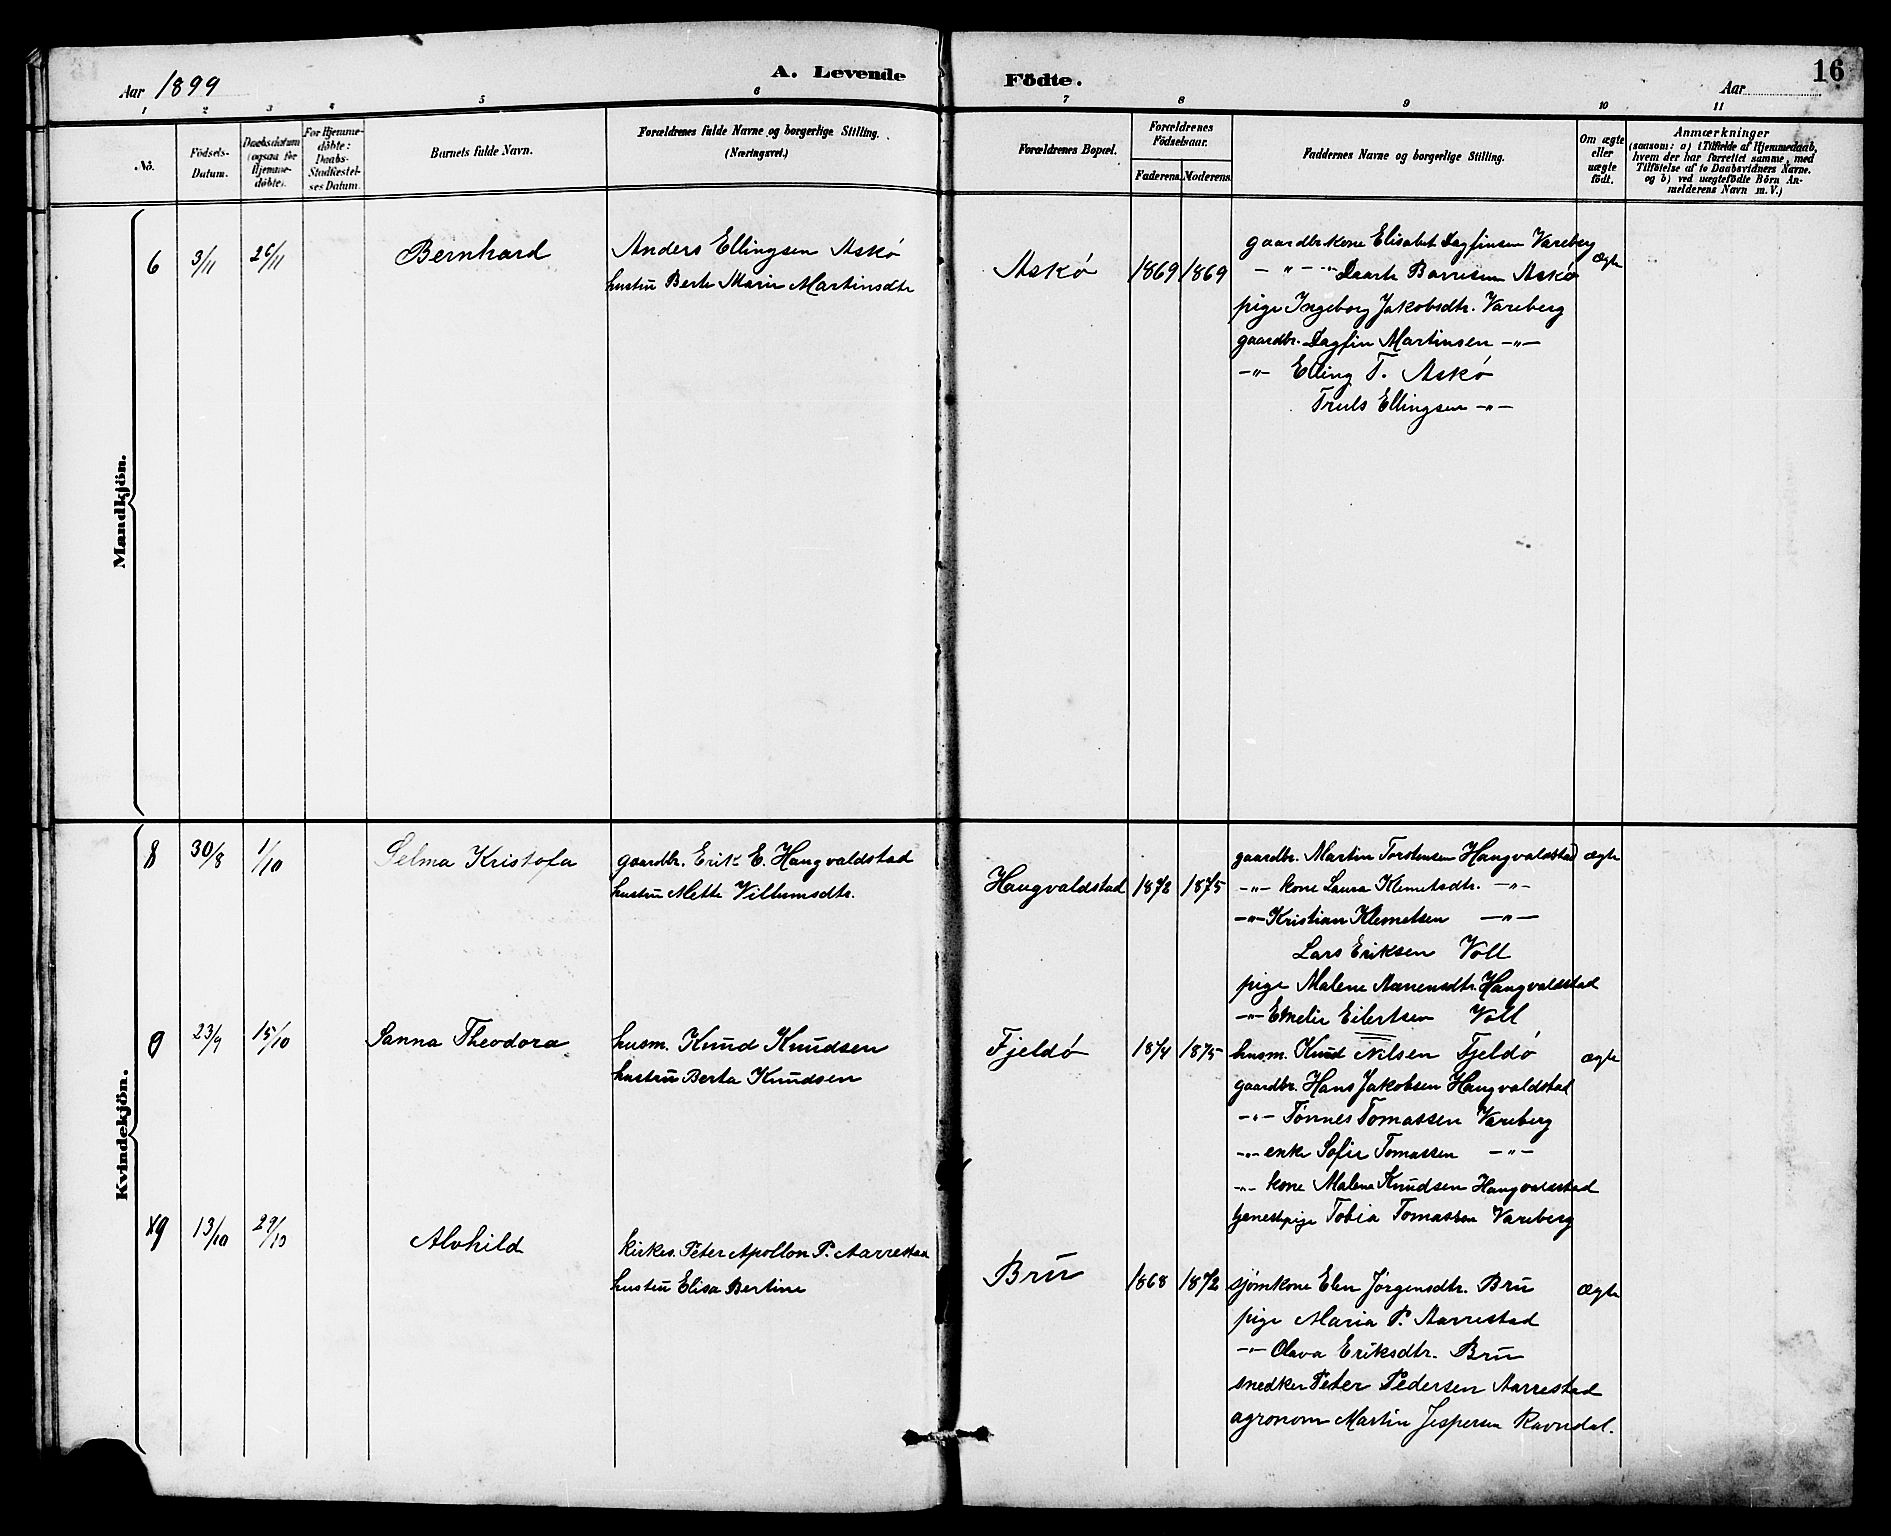 Aar 1899
A. Levende Födte.
Aar
16
1 2 3 4 5 6 7 8 9 10 11
No.
Födsels-Datum.
Daabsdatum (ogsaa for Hjemme-döbte).
For Hjemme-döbte: Daabs-Stadfæstel-ses Datum.
Barnets fulde Navn.
Forældrenes fulde Navne og borgerlige Stilling. (Næringsvei.)
Forældrenes Bopæl.
Forældrenes Födselsaar.
Faderens. Moderens.
Faddernes Navne og borgerlige Stilling.
Om ægte eller uægte födt.
Anmærkninger
(saasom: a) i Tilfælde af Hjemmedaab,
hvem der har forrettet samme, med
Tilföielse af to Daabsvidners Navne.
og b) ved uægtefödte Börn An-
melderens Navn m. V.)
Mandkjön.
6 3/11 26/11 Bernhard
Anders Ellingsen Askø
hustru Berte Marie Martinsdtr
Askø 1869 1869
gaardbr.kone Elisabet Dagfinsen Vareberg
— " — " Daarte Barresen Askø
pige Ingeborg Jakobsdtr. Vareberg
gaardbr. Dagfin Martinsen — " —
— " — Elling T. Askø
Truls Ellingsen — " —
ægte
Kvindekjön.
8 30/8 1/10 Selma Kristofa
gaardbr. Erik E. Haugvaldstad
hustru Mette Villumsdtr.
Haugvaldstad 1872 1875
gaardbr. Martin Torstensen Haugvaldstad
— " — kone Laura Klemetsdtr. — " —
— " — Kristian Klemetsen — " —
Lars Eriksen Voll
pige Malene Aanensdtr. Haugvaldstad
— " — Emelie Eilertsen Voll
ægte
9 23/9 15/10 Sanna Theodora
husm. Knud Knudsen
hustru Berta Knudsen
Fjeldø 1874 1875
husm. Knud Nilsen Fjeldø
gaardbr. Hans Jakobsen Haugvaldstad
— " — Tønnes Tomassen Vareberg
— " — enke Sofie Tomassen — " —
— " — kone Malena Knudsen Haugvaldstad
tjenestpige Tobia Tomassen Vareberg
ægte
13/10 29/10 Alvhild
kirkes. Peter Apollon P. Aarrestad
hustru Elisa Bertine
Bru 1868 1872
sjømkone Elen Jørgensdtr. Bru
pige Maria P. Aarrestad
— " — Olava Eriksdtr. Bru
snedker Peter Pedersen Aarrestad
agronom Martin Jespersen Ravndal.
ægte